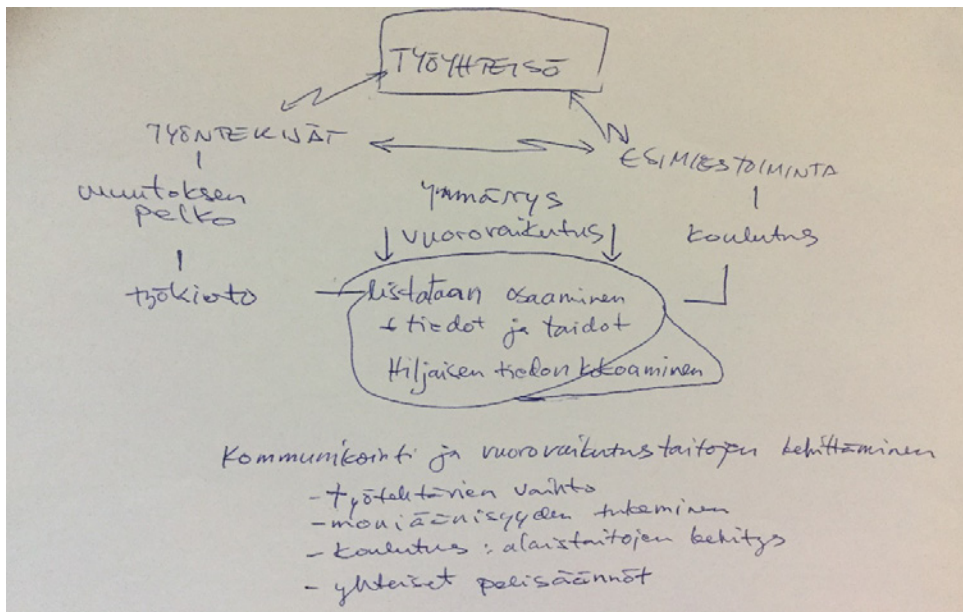 TYÖYHTEISÖ
TYÖNTEKIJÄT
ESIMIESTOIMINTA
muutoksen
pelko
ymmärrys
vuorovaikutus
koulutus
työkierto
listataan osaaminen
+ tiedot ja taidot
Hiljaisen tiedon kokoaminen
Kommunikointi ja vuorovaikutustaitojen kehittäminen
- työtehtävien vaihto
- moniäänisyyden tukeminen
- koulutus : alaistaitojen kehitys
- yhteiset pelisäännöt